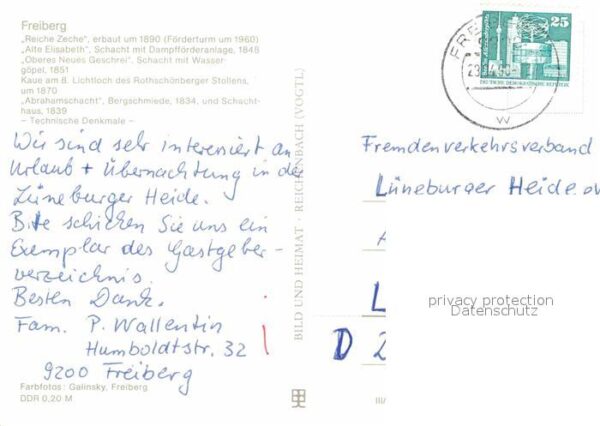 Freiberg
„Reiche Zeche“, erbaut um 1890 (Förderturm um 1960)
„Alte Elisabeth“, Schacht mit Dampfförderanlage, 1848
„Oberes Neues Geschrei“. Schacht mit Wasser
göpel. 1851
Kaue am 8. Lichtloch des Rothschönberger Stollens,
um 1870
„Abrahamschacht“, Bergschmiede, 1834, und Schacht-
haus, 1839
– Technische Denkmale –
Wir sind sehr interessiert an
Urlaub + Übernachtung in der
Lüneburger Heide.
Bitte schicken Sie uns ein
Exemplar des Gastgeber-
verzeichnis.
Besten Dank.
Fam. P. Wallentin
Humboldtstr. 32
9200 Freiberg
Farbfotos: Galinsky, Freiberg
DDR 0,20 M
BILD UND HEIMAT · REICHENBACH (VOGTL)
25
DEUTSCHE DEMOKRATISCHE REPUBLIK
w
Fremdenverkehrsverband
Lüneburger Heide
L
D 2
III/
privacy protection
Datenschutz